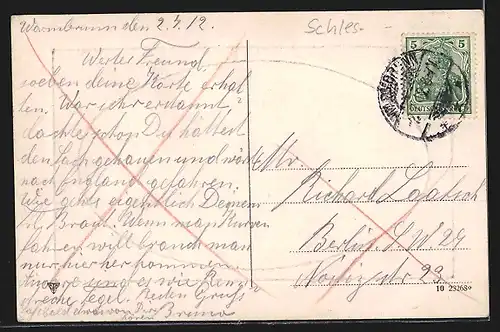 Warmbrunn den 2.4.12.
Schles.
Werter Freund
soeben deine Karte erhal
ten. War ich erstaunt
dachte schon Du hättest
den Sach gehauen und wärst
nach England gefahren.
Wie gehts eigentlich Deiner
Braut. Wenn man Kurven
fahren will brauch man
nur hier her kommen
und es wie
Besten Gruß
von
Bruno
5 5
DEUTSCHES REICH
WARMBRUNN
Hr.
Richard Laatsch
Berlin S.W 29
Nostizstr 23
10 23268